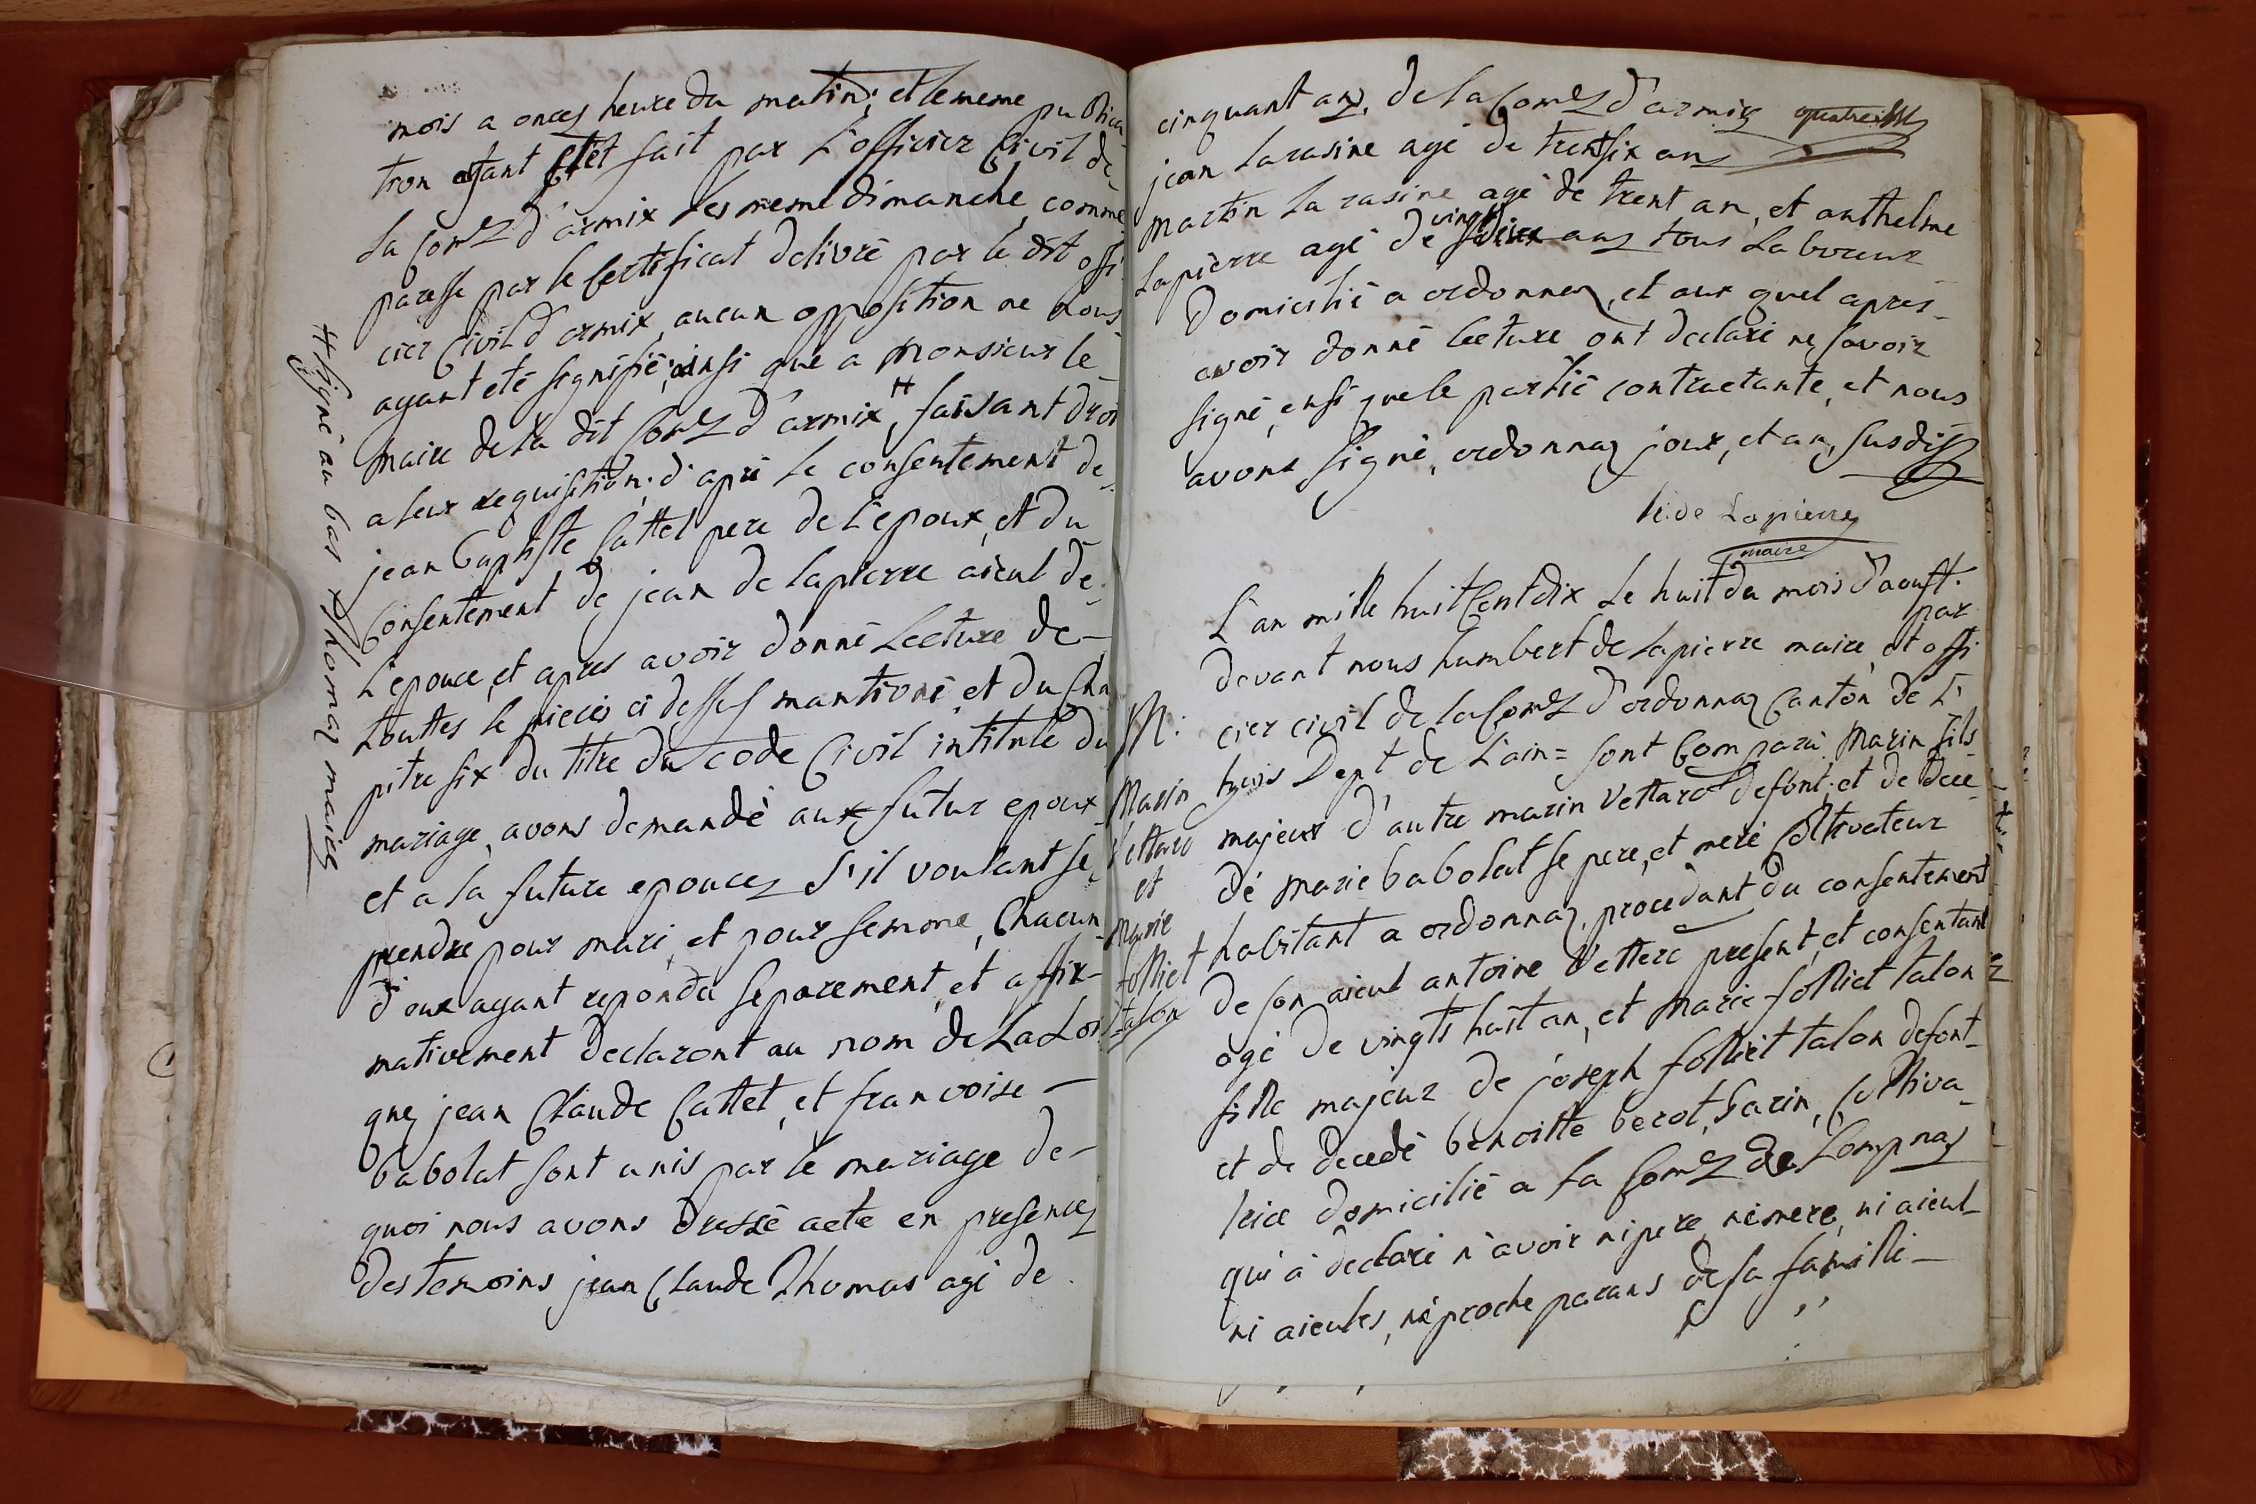 mois a onces heure du matin; et le meme publica
tion etant etét fait par L'officier Civil de
la Comz d'armix Les meme dimanche, comme
paresse par le Certificat delivré par le dit offi
cier Civil d'armix, aucun opposition ne nous
ayant eté signifié; ainsi que a Monsieur le
Maire de la dit Comz d'armix ⧺ faisant droi
a leur requisition; d'apré le consentement de
jean baptiste Cattet pere de L'epoux, et du
Consentement de jean de lapierre aieul de
L'epouce, et apres avoir donné Lecture de
touttes le pieces ci dessus mantioné, et du Cha
pitre six du titre du code Civil intitulé du
mariage, avons demandé aux futur epoux
et a la future epouces s'il voulant se
prendre pour mari, et pour femme, Chacun
d'eux ayant reponda separement, et affir-
mativement declaront au nom de La Loi
que jean Claude Cattet, et francoise
babolat sont unis par le mariage de
quoi nous avons dressé acte en presences
des temoins jean Claude Thomas agé de
⧺ signé au bas Thomas maire
cinquant ans, de la Comz d'armix
jean Larasine agé de trentsix ans
Martin Larasine agé de trent an, et anthelme
Lapierre agé de vingt ans tous Laboreur
Domicilié a ordonnaz, et aux quel apres
avoir donné lecture ont declaré ne savoir
signé, ensi que le partié contractante, et nous
avons signé, ordonnaz jour, et an, susdit
de Lapierre
maire
L'an mille huit Cent dix Le huit du mois d'aoust par
devant nous humbert de Lapierre maire, et offi
cier civil de la Comz d'ordonnaz Canton de L'
huis Dept de L'ain = sont Comparu Marin fils
majeur d'autre marin Vettard defont, et de dece
dé Marie babolat se pere, et meré Coltivateur
habitant a ordonnaz, procedant du consentement
de son aieul antoine Vettard present, et consentant
agé de vingts huit an, et Marie folliet talon
fille majeur de joseph folliet talon defont
et de decedé benoitte berot, Sarin, Cultiva
trice domicilié a la Comz de Lompnas
qui a declaré n'avoir ni pere, ni mere, ni aieul
ni aieules, ni proche parans de sa famille
M:
Marin
Vettard
et
Marie
folliet
talon